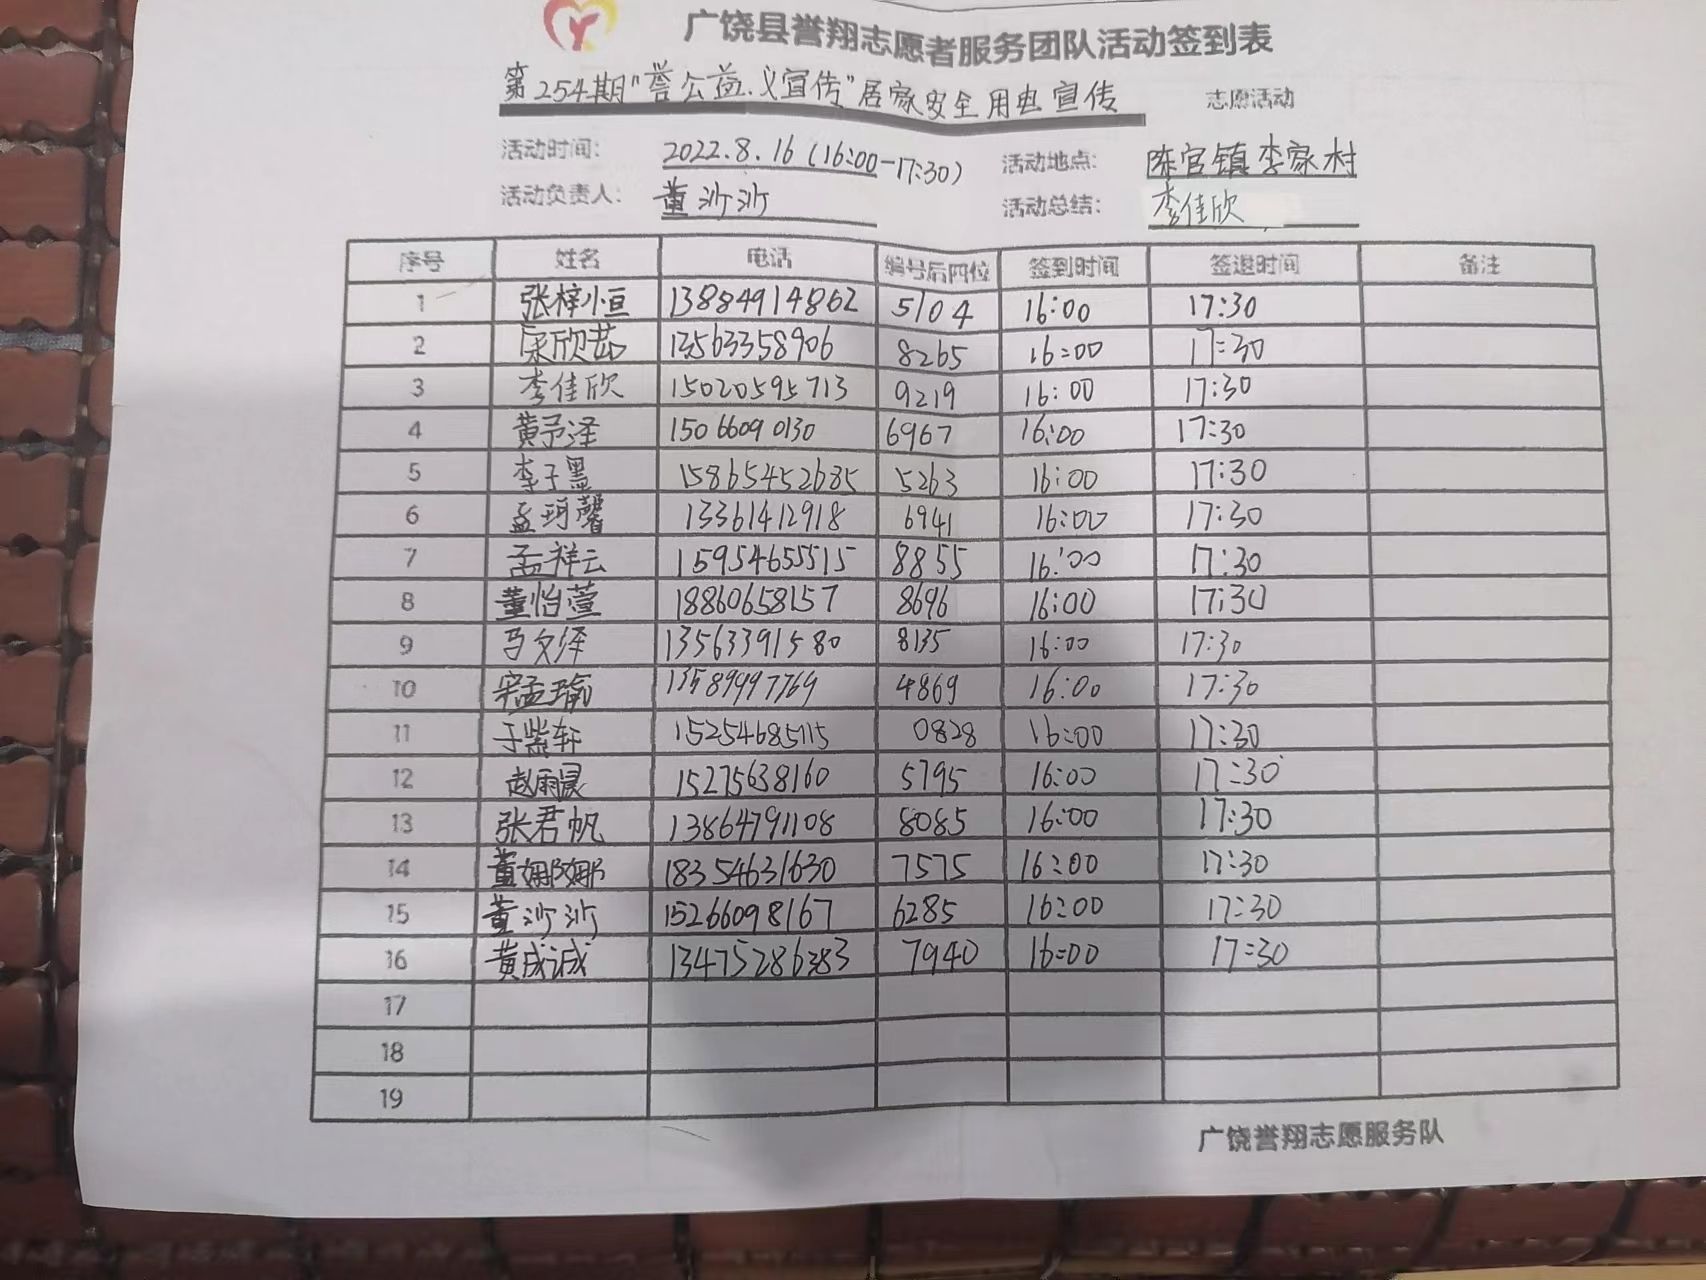 广饶县誉翔志愿者服务团队活动签到表
第254期"誉公益.义宣传"居家安全用电宣传 志愿活动
活动时间: 2022.8.16(16:00-17:30) 活动地点: 陈官镇李家村
活动负责人: 董沙沙 活动总结: 李佳欣
序号 姓名 电话 编号后四位 签到时间 签退时间 备注
1 张梓恒 13884914862 5104 16:00 17:30
2 宋欣茹 13563358906 8265 16:00 17:30
3 李佳欣 15020595713 9219 16:00 17:30
4 黄予泽 15066090130 6967 16:00 17:30
5 李子墨 15865452685 5263 16:00 17:30
6 孟玥馨 13361412918 6941 16:00 17:30
7 孟祥云 15954655515 8855 16:00 17:30
8 董怡萱 18860658157 8696 16:00 17:30
9 马文泽 13563391580 8135 16:00 17:30
10 宋孟瑜 13589997769 4869 16:00 17:30
11 于紫轩 15254685115 0828 16:00 17:30
12 赵雨晨 15275638160 5795 16:00 17:30
13 张君帆 13864791108 8085 16:00 17:30
14 董娜娜 18354631630 7575 16:00 17:30
15 董沙沙 15266098167 6285 16:00 17:30
16 黄成诚 7940 16:00 17:30
17
18
19
广饶誉翔志愿服务队